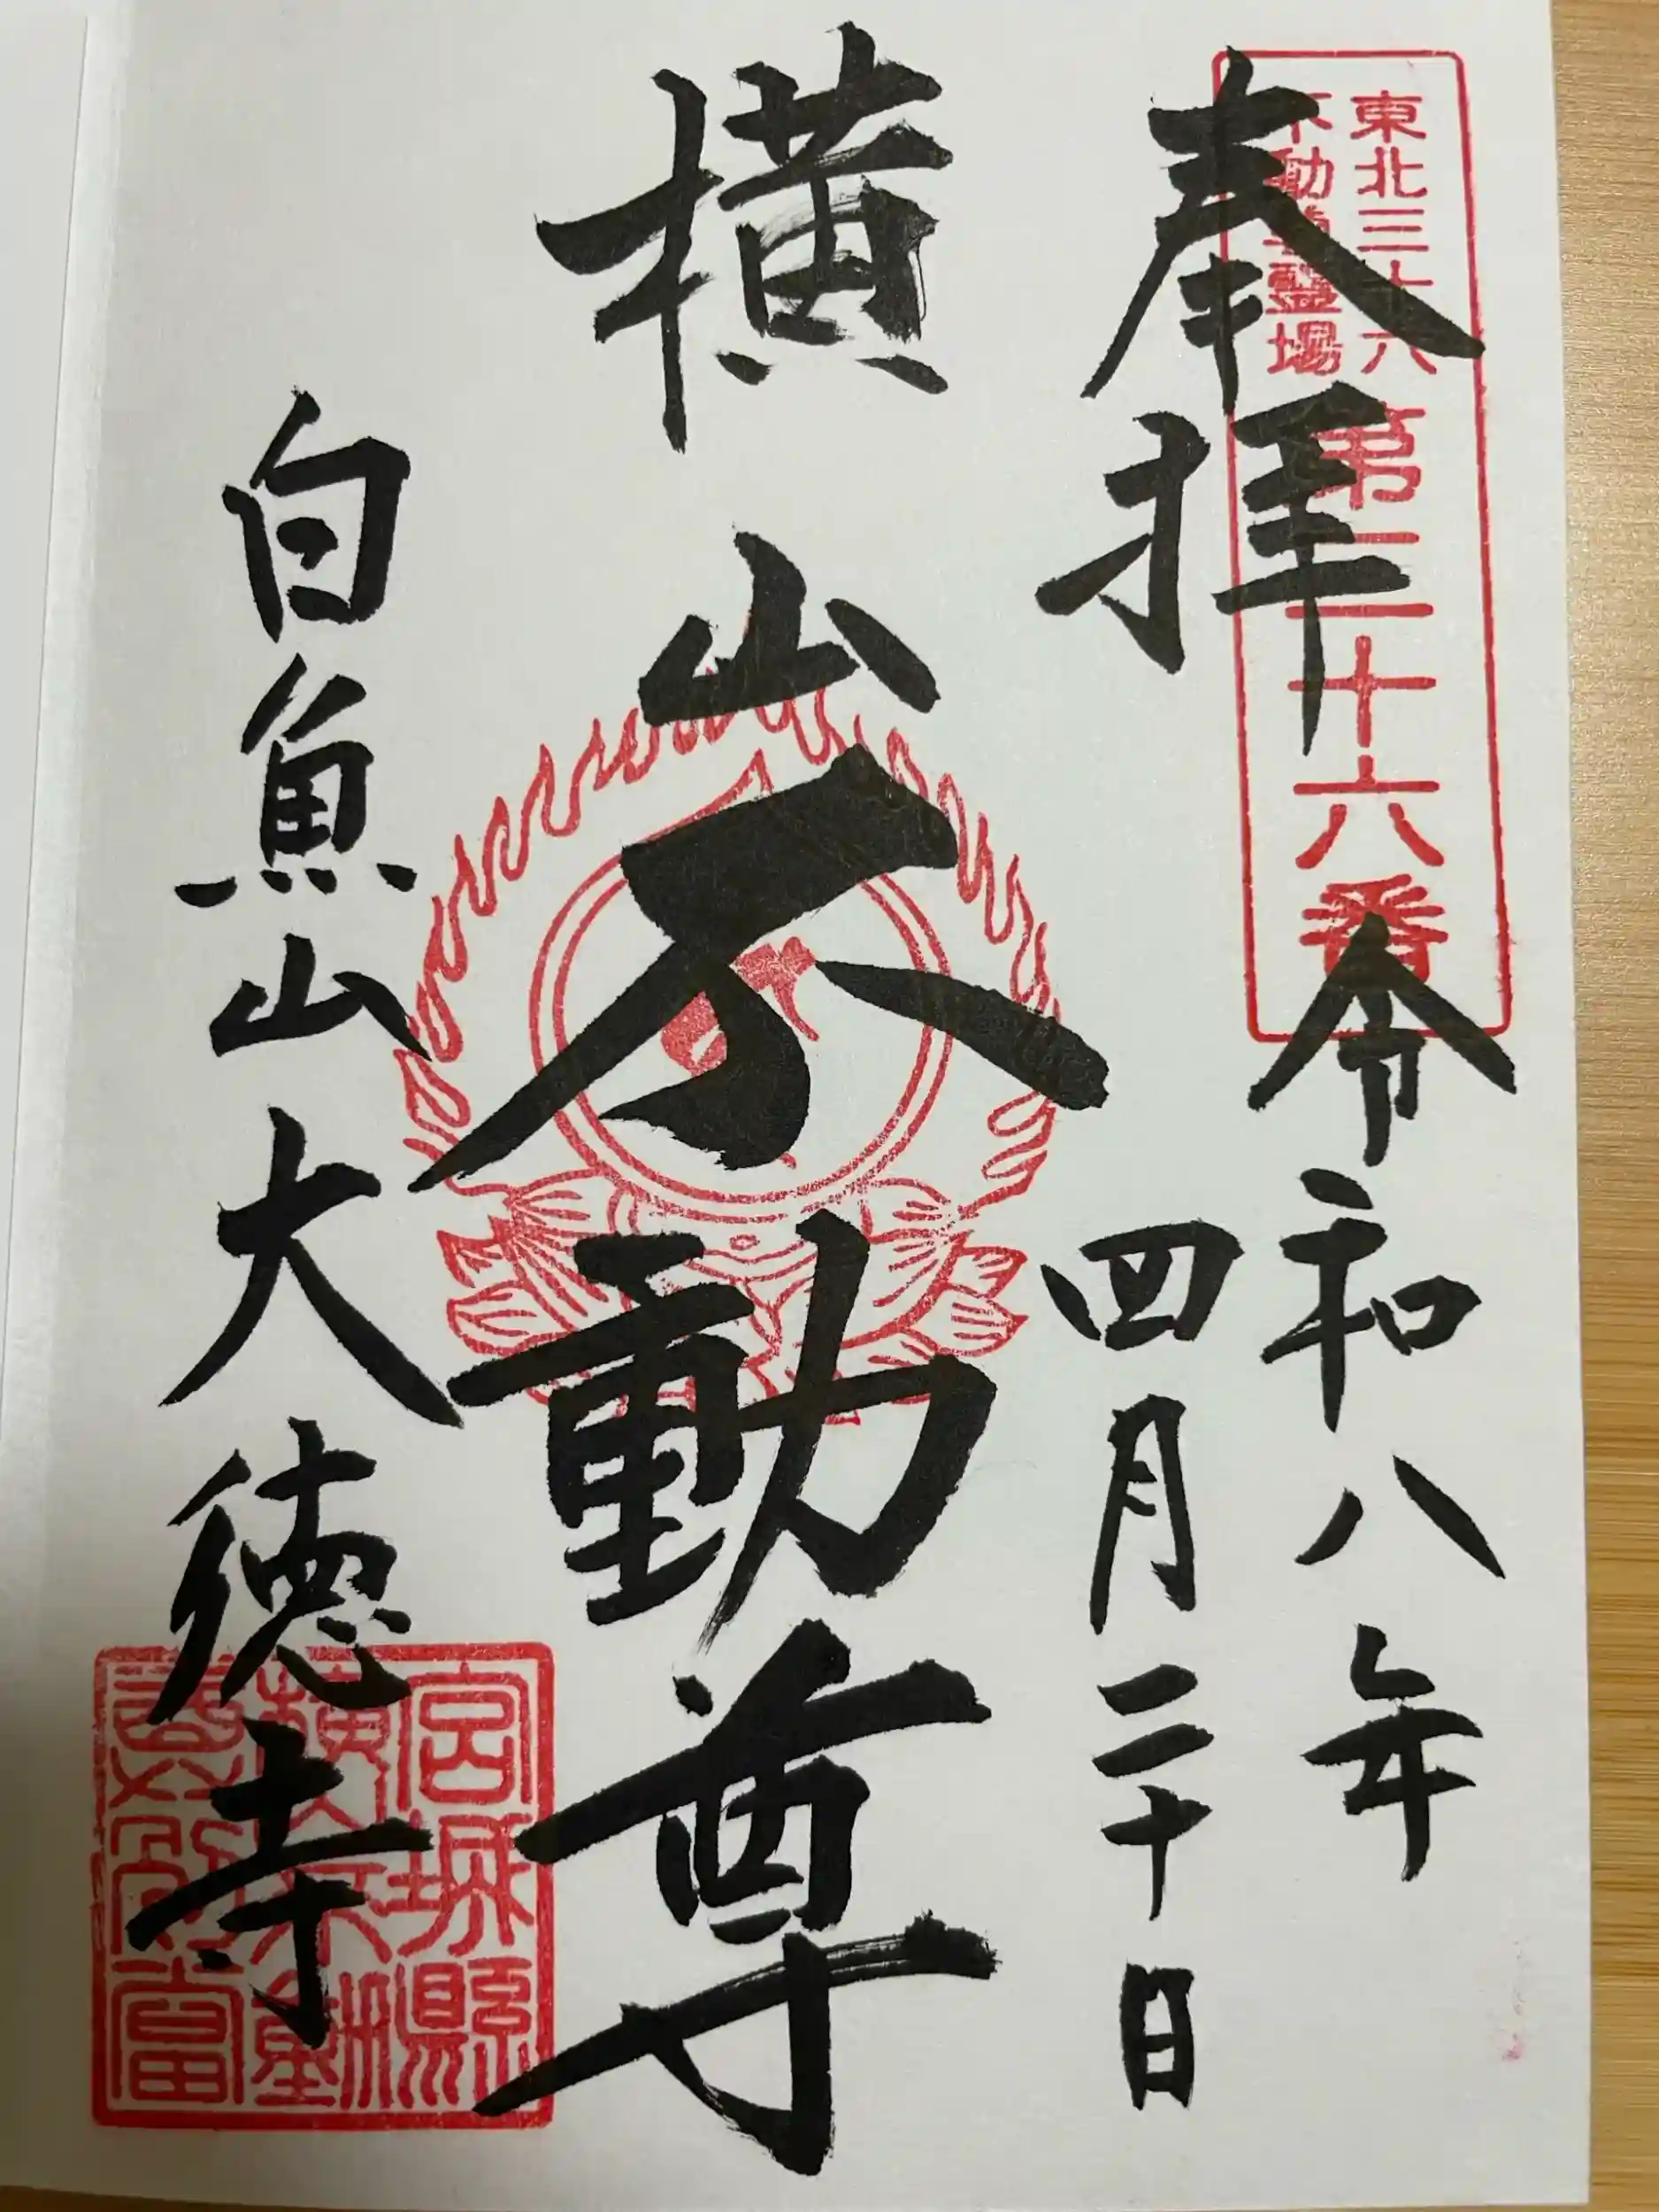 東北三十六
不動尊霊場
第二十六番
奉拝
令和八年
四月二十日
横山不動尊
白魚山大徳寺
宮城縣
横山不動